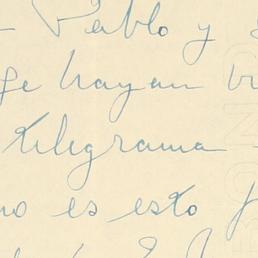 - Pablo y
ge hayan
telegrama -
no es esto
BOND